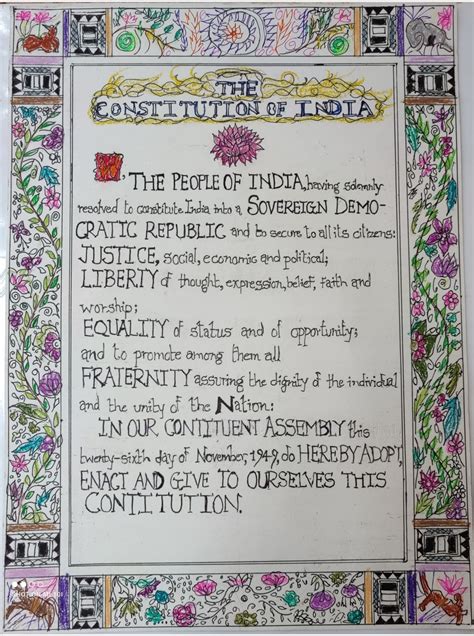 THE
CONSTITUTION OF INDIA
WE, THE PEOPLE OF INDIA, having solemnly
resolved to constitute India into a SOVEREIGN DEMO-
CRATIC REPUBLIC and to secure to all its citizens:
JUSTICE, social, economic and political;
LIBERTY of thought, expression, belief, faith and
worship;
EQUALITY of status and of opportunity;
and to promote among them all
FRATERNITY assuring the dignity of the individual
and the unity of the Nation:
IN OUR CONTITUENT ASSEMBLY this
twenty-sixth day of November, 1949, do HEREBY ADOPT,
ENACT AND GIVE TO OURSELVES THIS
CONTITUTION.